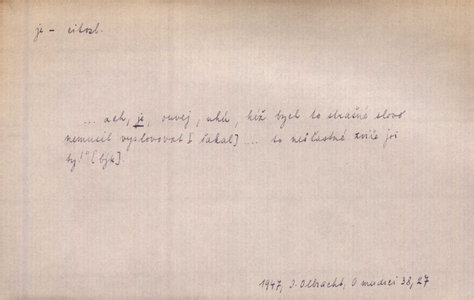 je – citosl.
... ach, je, ouvej, uhh, kéž bych to strašné slovo
nemusil vyslovovat [šakal] ... to nešťastné zvíře jsi
ty!" [býk].
1947, I. Olbracht, O mudrci 38,27